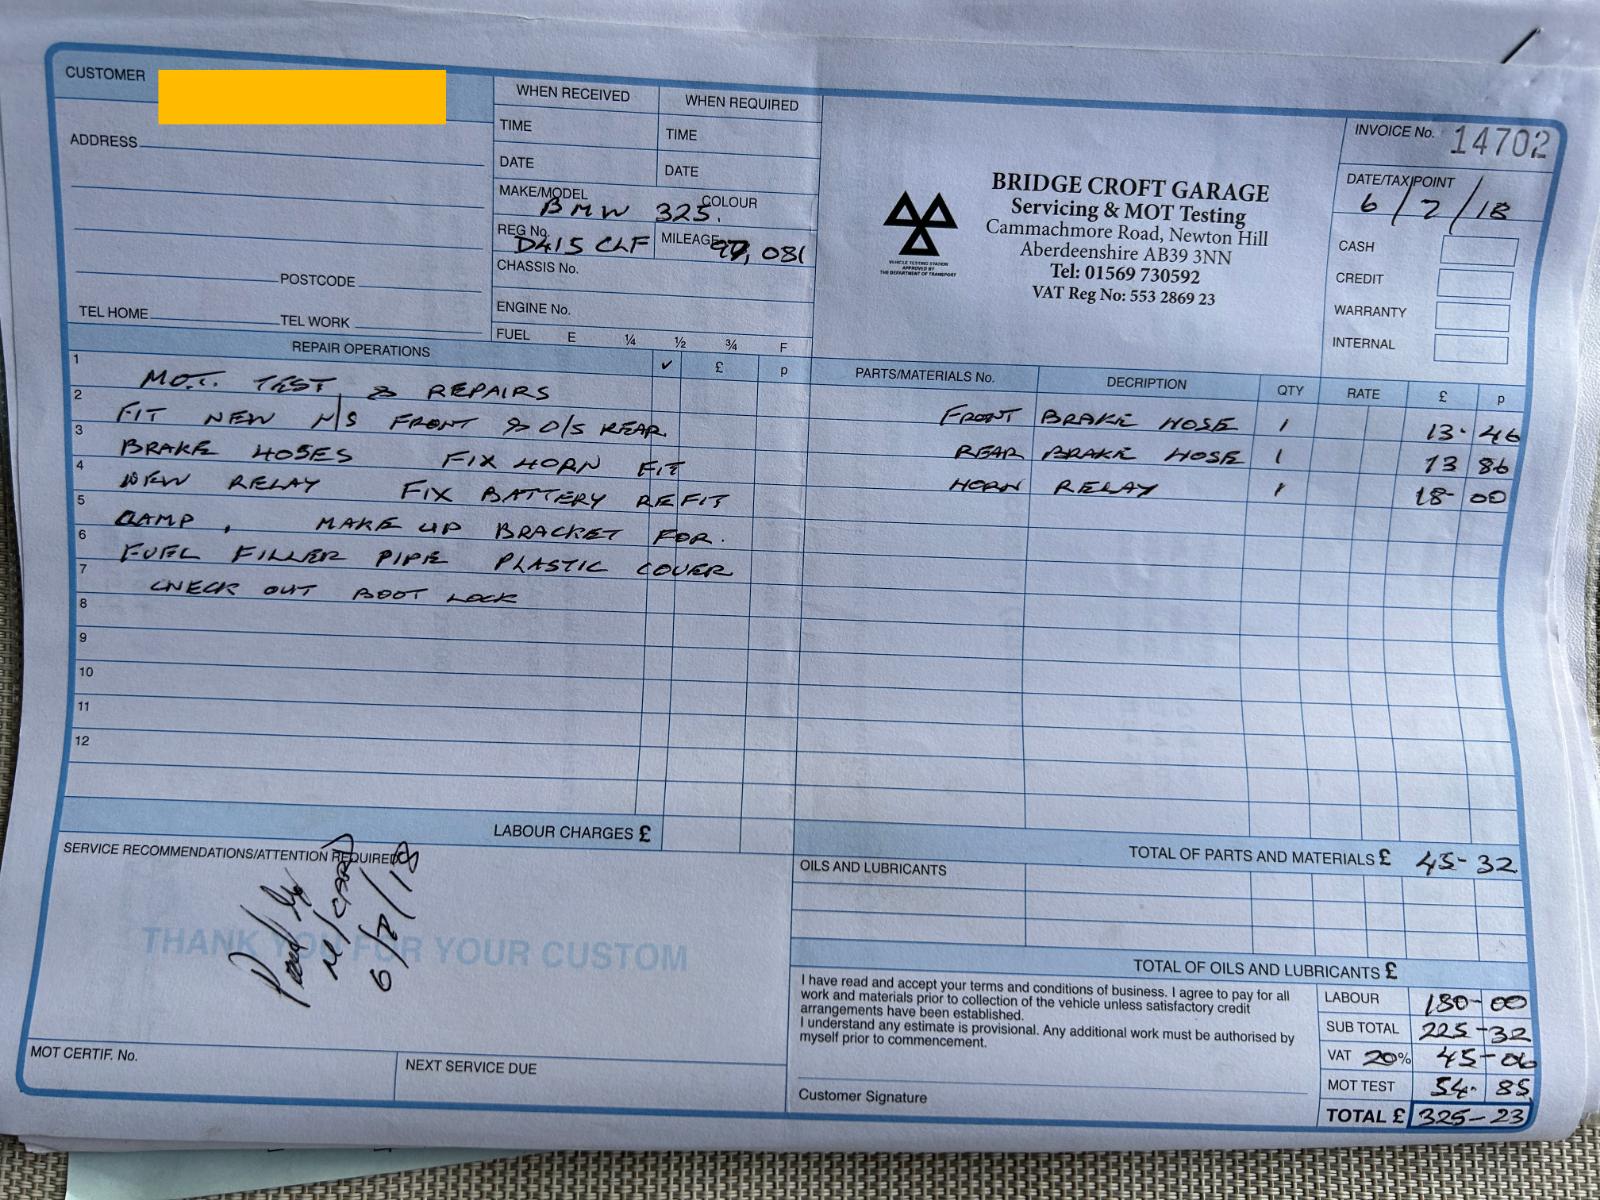 CUSTOMER
ADDRESS
POSTCODE
TEL HOME TEL WORK
WHEN RECEIVED WHEN REQUIRED
TIME TIME
DATE DATE
MAKE/MODEL COLOUR
BMW 325.
REG No. D415 CLF MILEAGE 97,081
CHASSIS No.
ENGINE No.
FUEL E ¼ ½ ¾ F
BRIDGE CROFT GARAGE
Servicing & MOT Testing
Cammachmore Road, Newton Hill
Aberdeenshire AB39 3NN
Tel: 01569 730592
VAT Reg No: 553 2869 23
VEHICLE TESTING STATION
APPROVED BY
THE DEPARTMENT OF TRANSPORT
INVOICE No. 14702
DATE/TAX POINT
6/2/18
CASH
CREDIT
WARRANTY
INTERNAL
REPAIR OPERATIONS ✓ £ p
1 M.O.T. TEST & REPAIRS
2 FIT NEW N/S FRONT & O/S REAR
3 BRAKE HOSES FIX HORN FIT
4 NEW RELAY FIX BATTERY REFIT
5 CLAMP, MAKE UP BRACKET FOR.
6 FUEL FILLER PIPE PLASTIC COVER
7 CHECK OUT BOOT LOCK
8
9
10
11
12
LABOUR CHARGES £
PARTS/MATERIALS No. DECRIPTION QTY RATE £ p
FRONT BRAKE HOSE 1 13.46
REAR BRAKE HOSE 1 13 86
HORN RELAY 1 18-00
TOTAL OF PARTS AND MATERIALS £ 45-32
OILS AND LUBRICANTS
TOTAL OF OILS AND LUBRICANTS £
SERVICE RECOMMENDATIONS/ATTENTION REQUIRED
Paid by
M/CARD
6/2/18
THANK YOU FOR YOUR CUSTOM
MOT CERTIF. No.
NEXT SERVICE DUE
I have read and accept your terms and conditions of business. I agree to pay for all
work and materials prior to collection of the vehicle unless satisfactory credit
arrangements have been established.
I understand any estimate is provisional. Any additional work must be authorised by
myself prior to commencement.
Customer Signature
LABOUR 180-00
SUB TOTAL 225-32
VAT 20% 45-06
MOT TEST 54.85
TOTAL £ 325-23